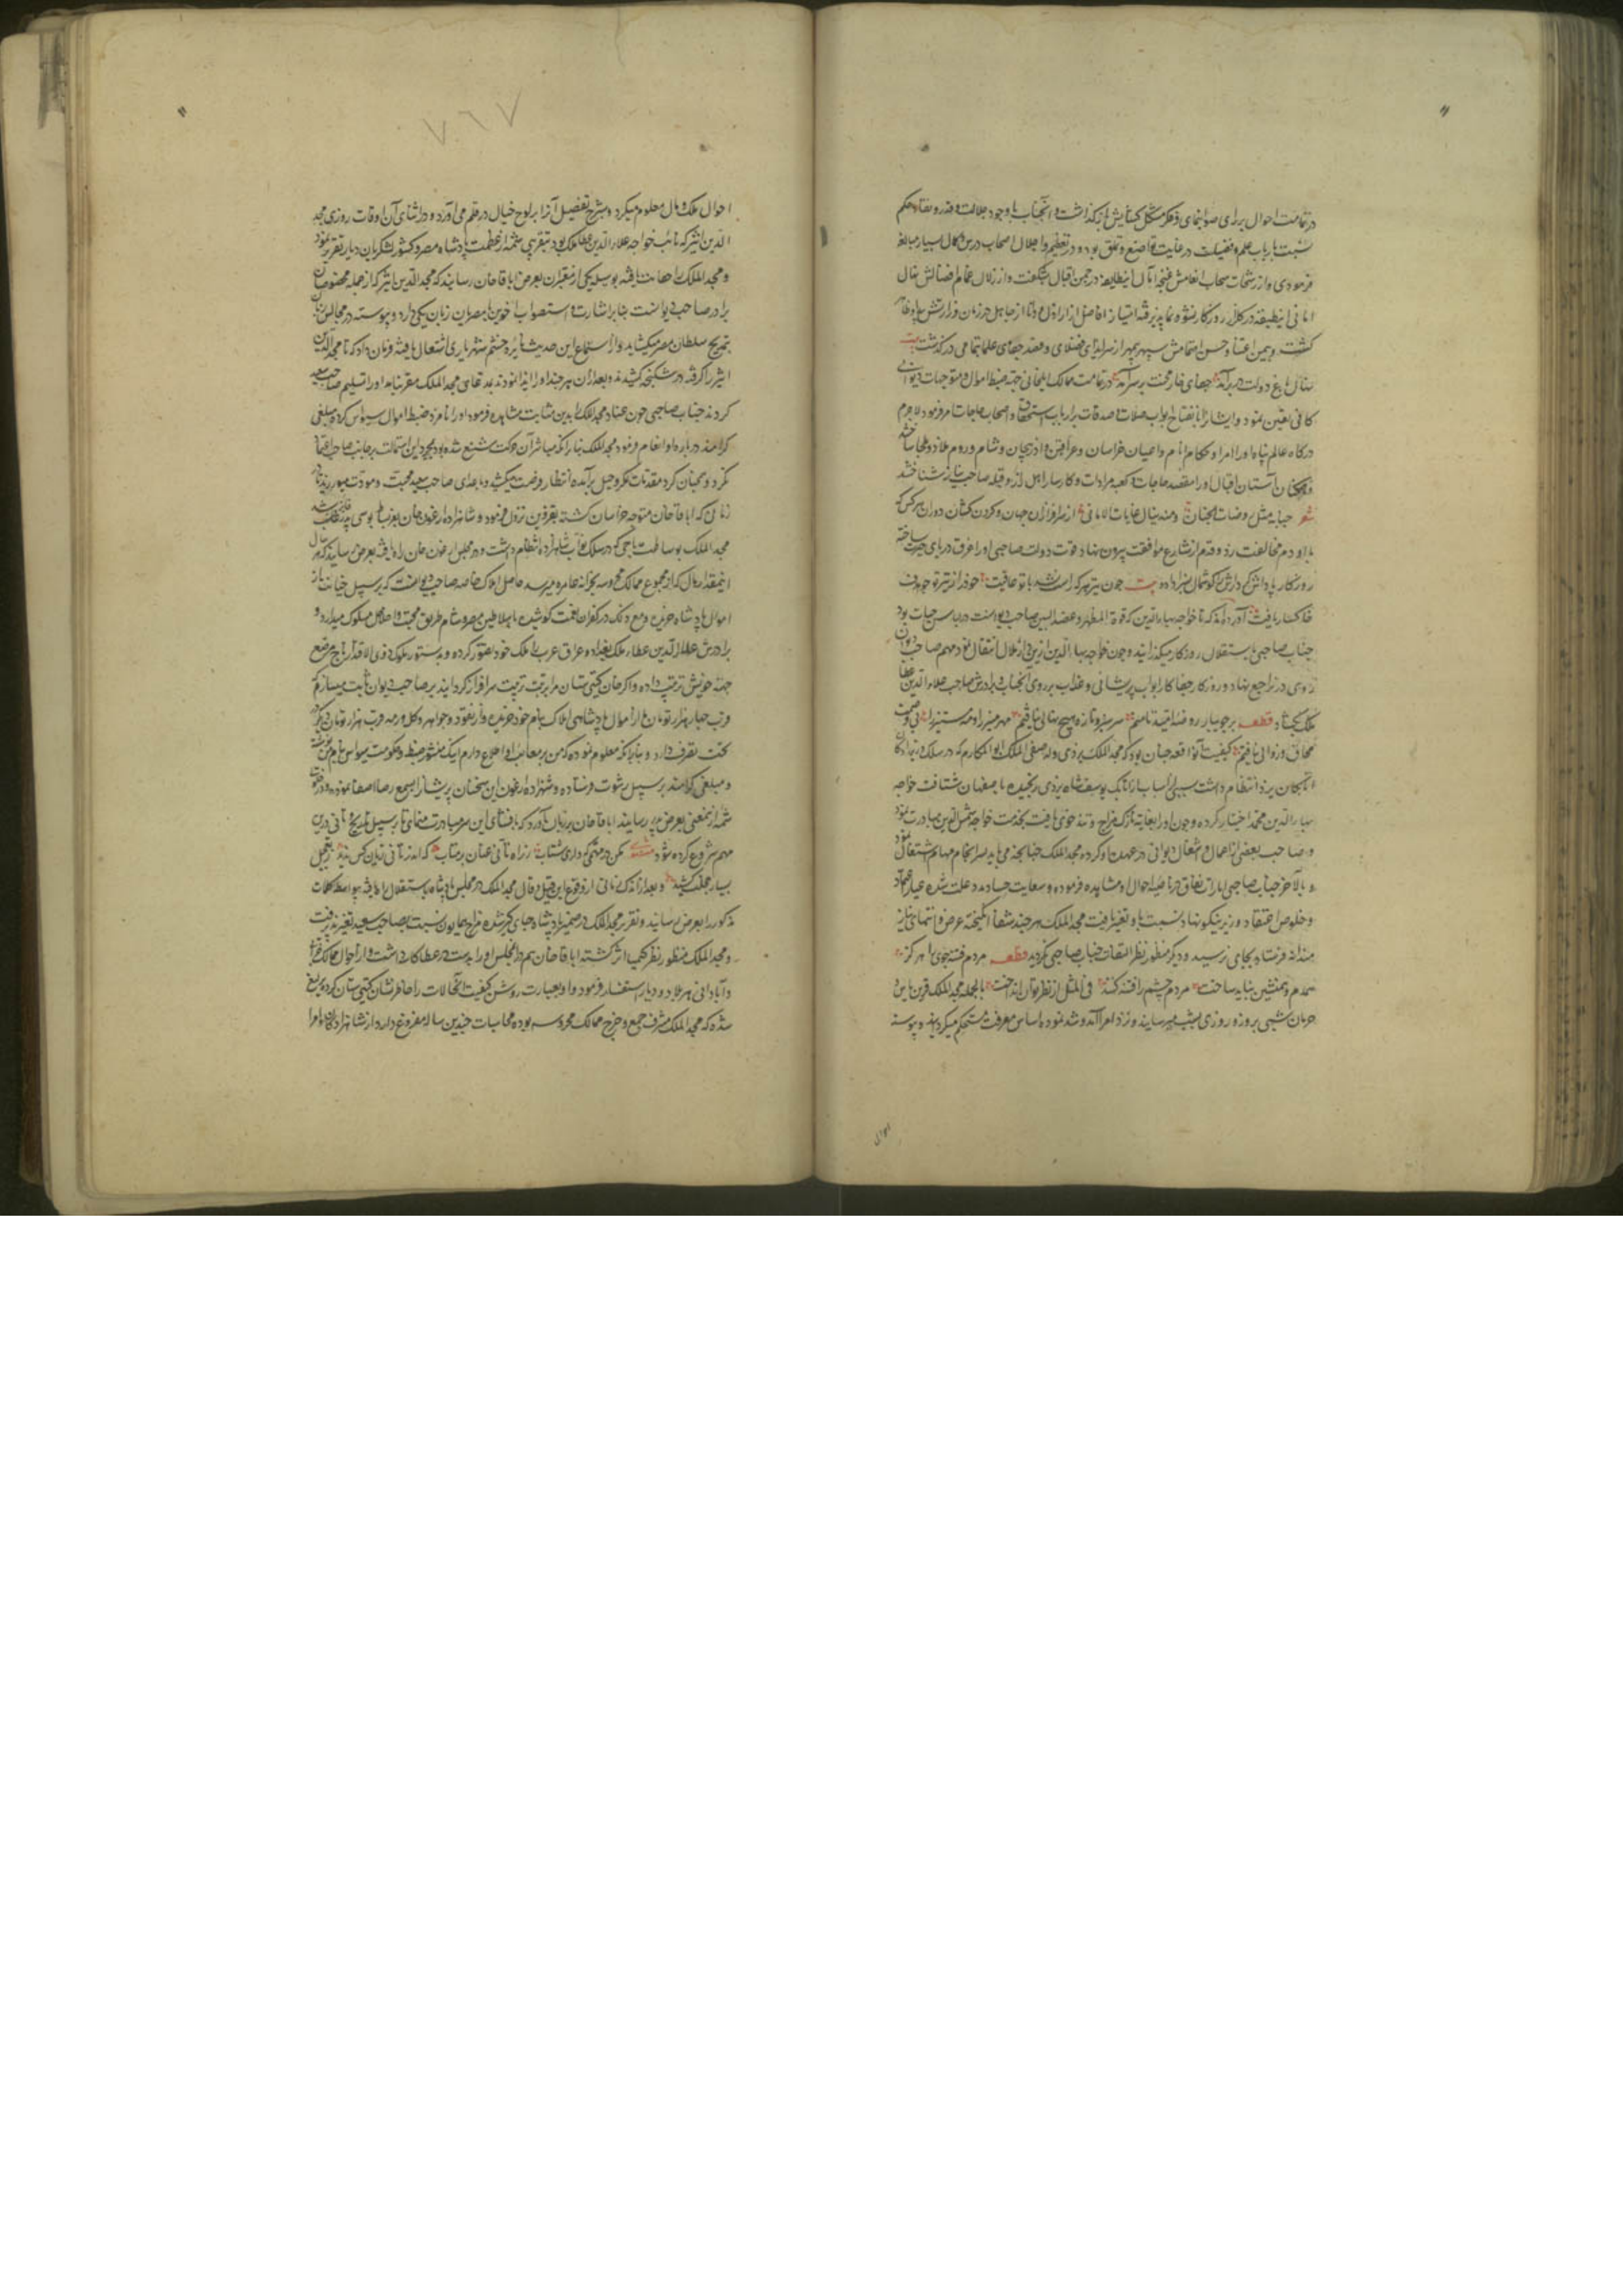 در تمامت احوال برای صوابنمای و فکر مشکل گشایش باز گذاشت و آنجناب با وجود جلالت قدر و نفاذ حکم
نسبت بارباب علم و فضیلت در غایت تواضع و تملق بوده و در تعظیم و اجلال اصحاب درس و کمال بسیار مبالغه
فرمودی و از رشحات سحاب انعامش غنچه آمال اینطایفه در چمن اقبال شکفت و از زلال غمام افضالش نهال
امانی اینطبقه در کلزار روزکار نشو و نما پذیرفته امتیاز افاضل از اراذل و دانا از جاهل در زمان وزارتش
کشت و بیمن اعتنا و حسن اهتمامش سپهر بیمهر از سر ایذای فضلای و قصد جفای علما بتمامی در گذشت بیت
نهال باغ دولت در بر آمد جفای خار محنت بر سر آمد در تمامت ممالک ایلخانی جهة ضبط اموال و متوجهات دیوانی
کافی تعیین نمود و ایشانرا بانفتاح ابواب صلات و صدقات بر ارباب استحقاق و اصحاب حاجات امر فرمود لاجرم
درکاه عالم پناه او را امرا و حکام انام و اعیان خراسان و عراقین و اذربیجان و شام و روم ملاذ و ملجا ساختند
و آستان اقبال او را مقصد حاجات و کعبه مرادات و کارساز اهل راز و قبله صاحب نیاز شناختند
شعر جنابه مثل روضات الجنان و منه ینال غایات الامانی از سرافرازان جهان و کردن کشان دوران هر کس که
با او دم مخالفت زد و قدم از شارع موافقت بیرون نهاد قوت دولت صاحبی او را غرق دریای حیرت ساخته
روزکار پاداش کردارش بکوشمال سزا داد بیت چون تیر هر که راست نشد با تو عاقبت خود را ز تیر تو چو هدف
خاکسار یافت آورده اند که تا خواجه بهاءالدین که قرة الظهر و عضد الیمین صاحب دیوانست در لباس حیات بود
جناب صاحبی باستقلال روزکار میکذرانید و چون خواجه بهاءالدین ازین انتقال نمود مهم صاحب دیوان
روی در تراجع نهاد و روزکار جفا کار ابواب پریشانی و عذاب بر روی آنجناب و برادرش صاحب علاءالدین عطا
ملک بکشاد قطعه بر جویبار روضه امید تا منم سرسبز و تازه هیچ نهالی نیافتم مهر منیر را و مه مستنیر را بی وصمت
محاق و زوالی نیافتم کیفیت آنواقعه چنان بود که مجد الملک یزدی ولد صفی الملک ابو المکارم که در سلک وزراء
اتابکان یزد انتظام داشت بسببی از اسباب از اتابک یوسفشاه یزدی رنجیده باصفهان شتافت خواجه
بهاءالدین محمد اختیار کرده و چون او را بغایة نازک مزاج و تند خوی یافت بخدمت خواجه شمس الدین مبادرت نمود
و صاحب بعضی از اعمال و اشغال دیوانی در عهده او کرده مجد الملک چنانچه می باید بسر انجام مهام اشتغال نمود
و بالآخر جناب صاحبی امارات نفاق در ناصیه احوال او مشاهده فرموده و سعایت حساد مدد علت شده
و خلوص اعتقاد وزیر نیکو نهاد نسبت باو تغیر یافت مجد الملک هر چند شفعا انکیخته عرض و التماس نیاز
مندانه فرستاد بجایی نرسید و دیکر منظور نظر التفات جناب صاحبی نکردید قطعه مردم فتنه جوی را هرکز
همدم و همنشین نباید ساخت مردم چشم را فتنه کند فی المثل از نظر توان انداخت بالجمله مجد الملک قرین یاس و
حرمان شبی بروز و روزی بشب میرسانید و نزد امرا آمد و شد نموده اساس معرفت مستحکم میکردانید و پیوسته
احوال
٧٦٧
احوال ملک و مال معلوم میکرد و بشرح تفصیل آنرا بر لوح خیال در قلم می آورد و در اثنای آن اوقات روزی مجد
الدین اثیر که نائب خواجه علاءالدین عطا ملک بود بتقریبی شمه از عظمت پادشاه مصر و کثرت لشکریان دیار تقریر نمود
و مجد الملک یافته بوسیله یکی از مقربان بعرض اباقا خان رسانید که مجد الدین اثیر که از جمله مخصوصان
برادر صاحب دیوانست بنا بر اشارت و استصواب اخوین با مصریان زبان یکی دارد و پیوسته در مجالس زبان
بتمدیح سلطان مصر میکشاید و از استماع این حدیث نایره خشم شهریاری اشتعال یافته فرمان داد که تا مجد الدین
اثیر را گرفته در شکنجه کشیدند و بعد از آن هر چند او را ایذا نمودند بمدعای مجد الملک مقر نیامد او را تسلیم صاحب سعید
کردند جناب صاحبی چون عناد مجد الملک بدین مثابت مشاهده فرمود او را نامزد ضبط اموال سیواس کرده مبلغی
کرامند در باره او انعام فرمود مجد الملک بنا بر آنکه مباشر آن حرکت شنیع شده بود بمجرد این استمالت بر جانب صاحب اعتماد
نکرد و همچنان کرد مقدمات مکر و حیل بر آمده انتظار فرصت میکشید و با اعدای صاحب سعید محبت و مودت میورزید تا در
زمانی که اباقا خان متوجه خراسان کشته بقزوین نزول فرمود و شاهزاده ارغون خان بعز بساط بوسی پدر
مجد الملک بوساطت یاجی که در سلک نواب شاهزاده انتظام داشت در مجلس ارغون خان راه یافته بعرض رسانید که هر سال
اینمقدار مال که از مجموع ممالک محروسه بخزانه عامره میرسد حاصل املاک خاصه صاحب دیوانست که بر سبیل خیانت از
اموال پادشاه خریده و مع ذلک در کفران نعمت کوشیده با سلاطین مصر و شام طریق محبت و اخلاص مسلوک میدارد و
برادرش علاءالدین عطا ملک بغداد و عراق عرب را ملک خود تصور کرده و بدستور ملوک ذوی الاقتدار تاج مرصع
جهة خویش ترتیب داده و اکر خان گیتی ستان مرا بمرتبت تربیت سرافراز کرداند بر صاحب دیوان ثابت میسازم که
قرب چهار هزار تومان از اموال پادشاهی املاک بنام خود خریده و از نقود و جواهر و کله و رمه قرب هزار تومان دیکر
تحت تصرف دارد و بنا بر آنکه معلوم نموده که من بر معایب او اطلاع دارم اینک منشور ضبط و حکومت سیواس بنام من نوشته
و مبلغی کرامند بر سبیل رشوت فرستاده و شهزاده ارغون این سخنان پریشانرا بسمع رضا اصغا نموده و در خلوت
شمه ازینمعنی بعرض پدر رسانید اباقا خان بر زبان آورد که بافشای این سر مبادرت منمای تا بر سبیل تدریج و تانی درین
مهم شروع کرده شود مثنوی مکن در مهمی که داری شتاب ز راه تانی عنان بر متاب که اندر تانی زیان کس ندید ز تعجیل
بسیار خجلت کشید و بعد از اندک زمانی از وقوع این قیل و قال مجد الملک در مجلس پادشاه باستقلال راه یافته بیواسطه کلمات
مذکور را بعرض رسانید و تقریر مجد الملک در ضمیر پادشاه جای گیر شده مزاج همایون نسبت بصاحب سعید تغیر پذیرفت
و مجد الملک منظور نظر کیمیا اثر کشته اباقا خان هم در آن مجلس او را بدست در عطا کار داشت و از احوال ممالک
و آبادانی هر بلاد و دیار استفسار فرمود و او بعبارت روشن کیفیت آنحالات را خاطرنشان گیتی ستان کرد یرلیغ
شد که مجد الملک مشرف جمع و خرج ممالک محروسه بوده محاسبات چندین ساله مفروغ دارد از شاهزادکان و امرا